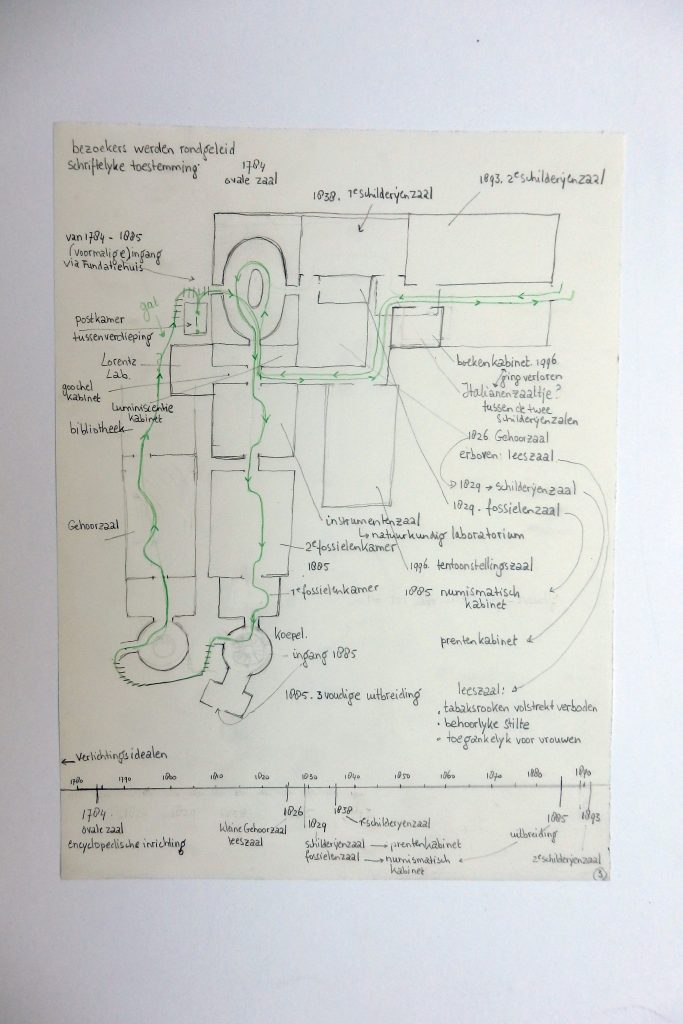 bezoekers werden rondgeleid
schriftelyke toestemming
1784
ovale zaal
1838. 1e schilderijenzaal
1893. 2e schilderijenzaal
van 1784 - 1885
(voormalige) ingang
via Fundatiehuis
gal
postkamer
tussenverdieping
Lorentz
Lab.
goochel
kabinet
Luminiscentie
kabinet
bibliotheek
boekenkabinet. 1996
ging verloren
Italianenzaaltje?
tussen de twee
schilderijenzalen
1826 Gehoorzaal
erboven: leeszaal
1829 → schilderijenzaal
1829. fossielenzaal
Gehoorzaal
instrumentenzaal
↳ natuurkundig laboratorium
2e fossielenkamer
1885
1996. tentoonstellingszaal
1e fossielenkamer
1885 numismatisch
kabinet
koepel.
prentenkabinet
ingang 1885
1885. 3voudige uitbreiding
leeszaal:
• tabaksrooken volstrekt verboden
• behoorlyke stilte
• toegankelyk voor vrouwen
← verlichtingsidealen
1780 1790 1800 1810 1820 1830 1840 1850 1860 1870 1880 1890
1784.
ovale zaal
encyclopedische inrichting
1826
kleine Gehoorzaal
leeszaal
1829
schilderijenzaal → prentenkabinet
fossielenzaal → numismatisch
kabinet
1838
1e schilderyenzaal
uitbreiding
1885
1893
2e schilderijenzaal
3